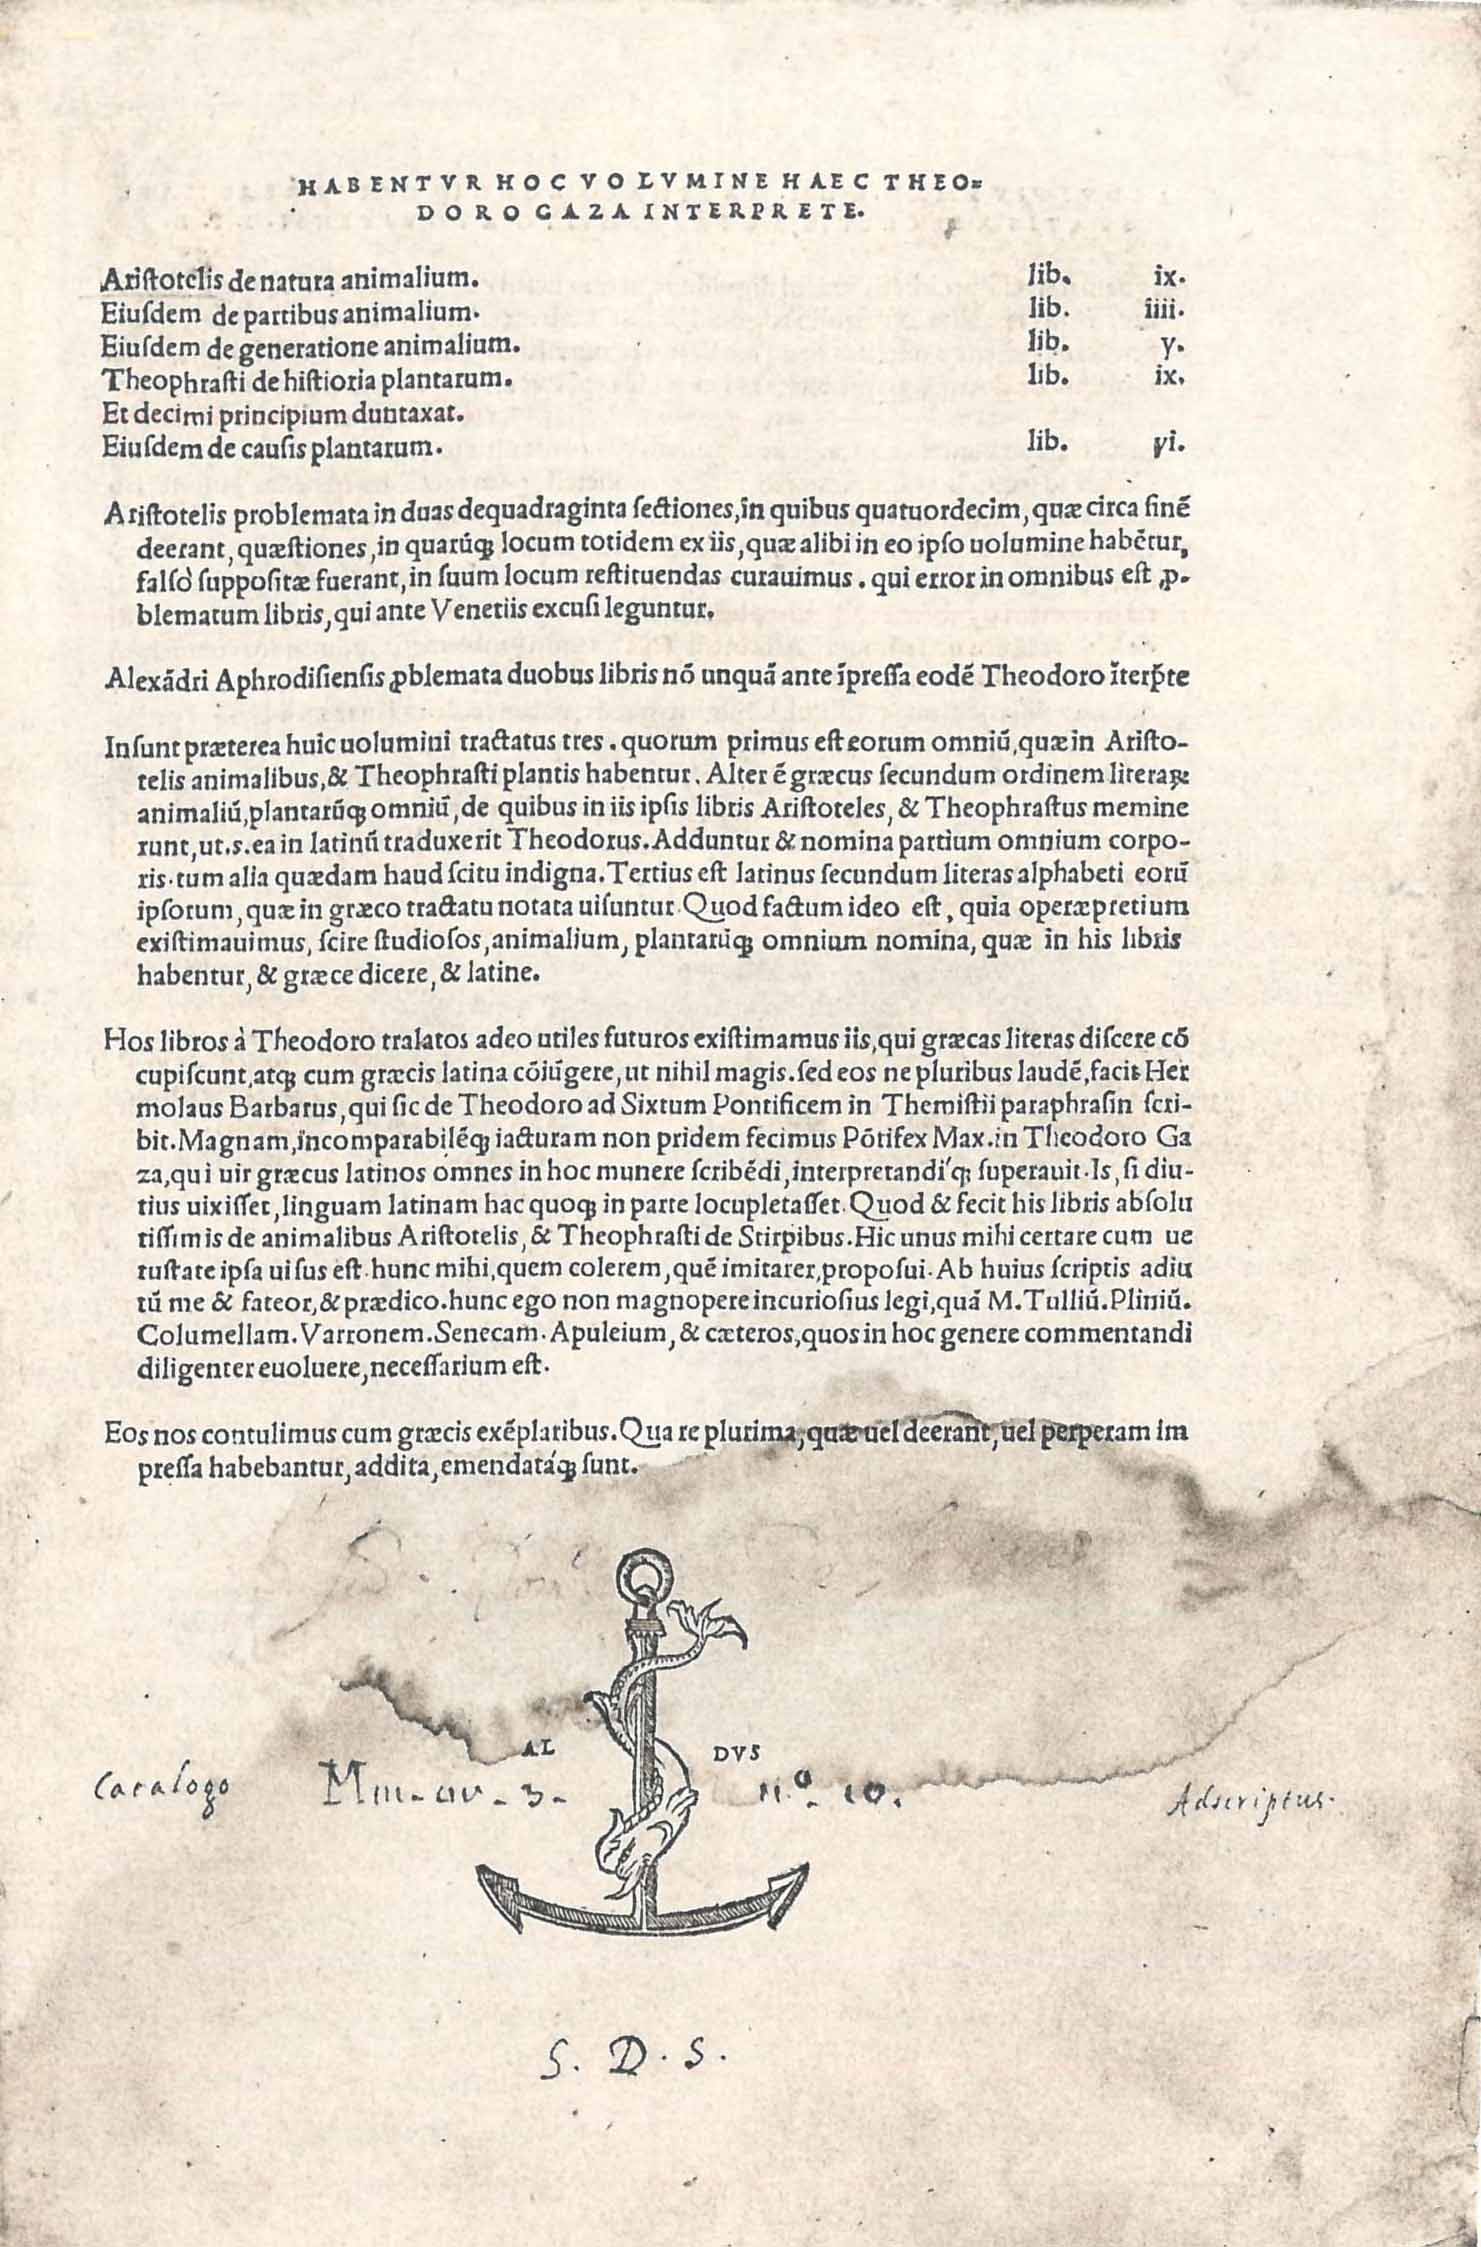 HABENTVR HOC VOLVMINE HAEC THEO=
DORO GAZA INTERPRETE.
Aristotelis de natura animalium. lib. ix.
Eiusdem de partibus animalium. lib. iiii.
Eiusdem de generatione animalium. lib. v.
Theophrasti de histioria plantarum. lib. ix.
Et decimi principium duntaxat.
Eiusdem de causis plantarum. lib. vi.
Aristotelis problemata in duas dequadraginta sectiones, in quibus quatuordecim, quæ circa finē
deerant, quæstiones, in quarūꝗ locum totidem ex iis, quæ alibi in eo ipso uolumine habētur,
falso' suppositæ fuerant, in suum locum restituendas curauimus. qui error in omnibus est ꝓ-
blematum libris, qui ante Venetiis excusi leguntur.
Alexādri Aphrodisiensis ꝓblemata duobus libris nō unquā ante īpressa eodē Theodoro īterp̄te
Insunt præterea huic uolumini tractatus tres. quorum primus est eorum omniū, quæ in Aristo-
telis animalibus, & Theophrasti plantis habentur. Alter ē græcus secundum ordinem literaꝝ
animaliū, plantarūꝗ omniū, de quibus in iis ipsis libris Aristoteles, & Theophrastus memine
runt, ut.s. ea in latinū traduxerit Theodorus. Adduntur & nomina partium omnium corpo-
ris. tum alia quædam haud scitu indigna. Tertius est latinus secundum literas alphabeti eorū
ipsorum, quæ in græco tractatu notata uisuntur. Quod factum ideo est, quia operæpretium
existimauimus, scire studiosos, animalium, plantarūꝗ omnium nomina, quæ in his libris
habentur, & græce dicere, & latine.
Hos libros à Theodoro tralatos adeo utiles futuros existimamus iis, qui græcas literas discere cō
cupiscunt, atꝗ cum græcis latina cōiūgere, ut nihil magis. sed eos ne pluribus laudē, facit Her
molaus Barbarus, qui sic de Theodoro ad Sixtum Pontificem in Themistii paraphrasin scri-
bit. Magnam, incomparabilēꝗ iacturam non pridem fecimus Pōtifex Max. in Theodoro Ga
za, qui uir græcus latinos omnes in hoc munere scribēdi, interpretandi'ꝗ superauit. Is, si diu-
tius uixisset, linguam latinam hac quoꝗ in parte locupletasset. Quod & fecit his libris absolu
tissimis de animalibus Aristotelis, & Theophrasti de Stirpibus. Hic unus mihi certare cum ue
tustate ipsa uisus est. hunc mihi, quem colerem, quē imitarer, proposui. Ab huius scriptis adiu
tū me & fateor, & prædico. hunc ego non magnopere incuriosius legi, quā M. Tulliū. Pliniū.
Columellam. Varronem. Senecam. Apuleium, & cæteros, quos in hoc genere commentandi
diligenter euoluere, necessarium est.
Eos nos contulimus cum græcis exēplaribus. Qua re plurima, quæ uel deerant, uel perperam im
pressa habebantur, addita, emendatáꝗ sunt.
AL DVS
Catalogo N.º 10. Adscriptus.
S. D. S.